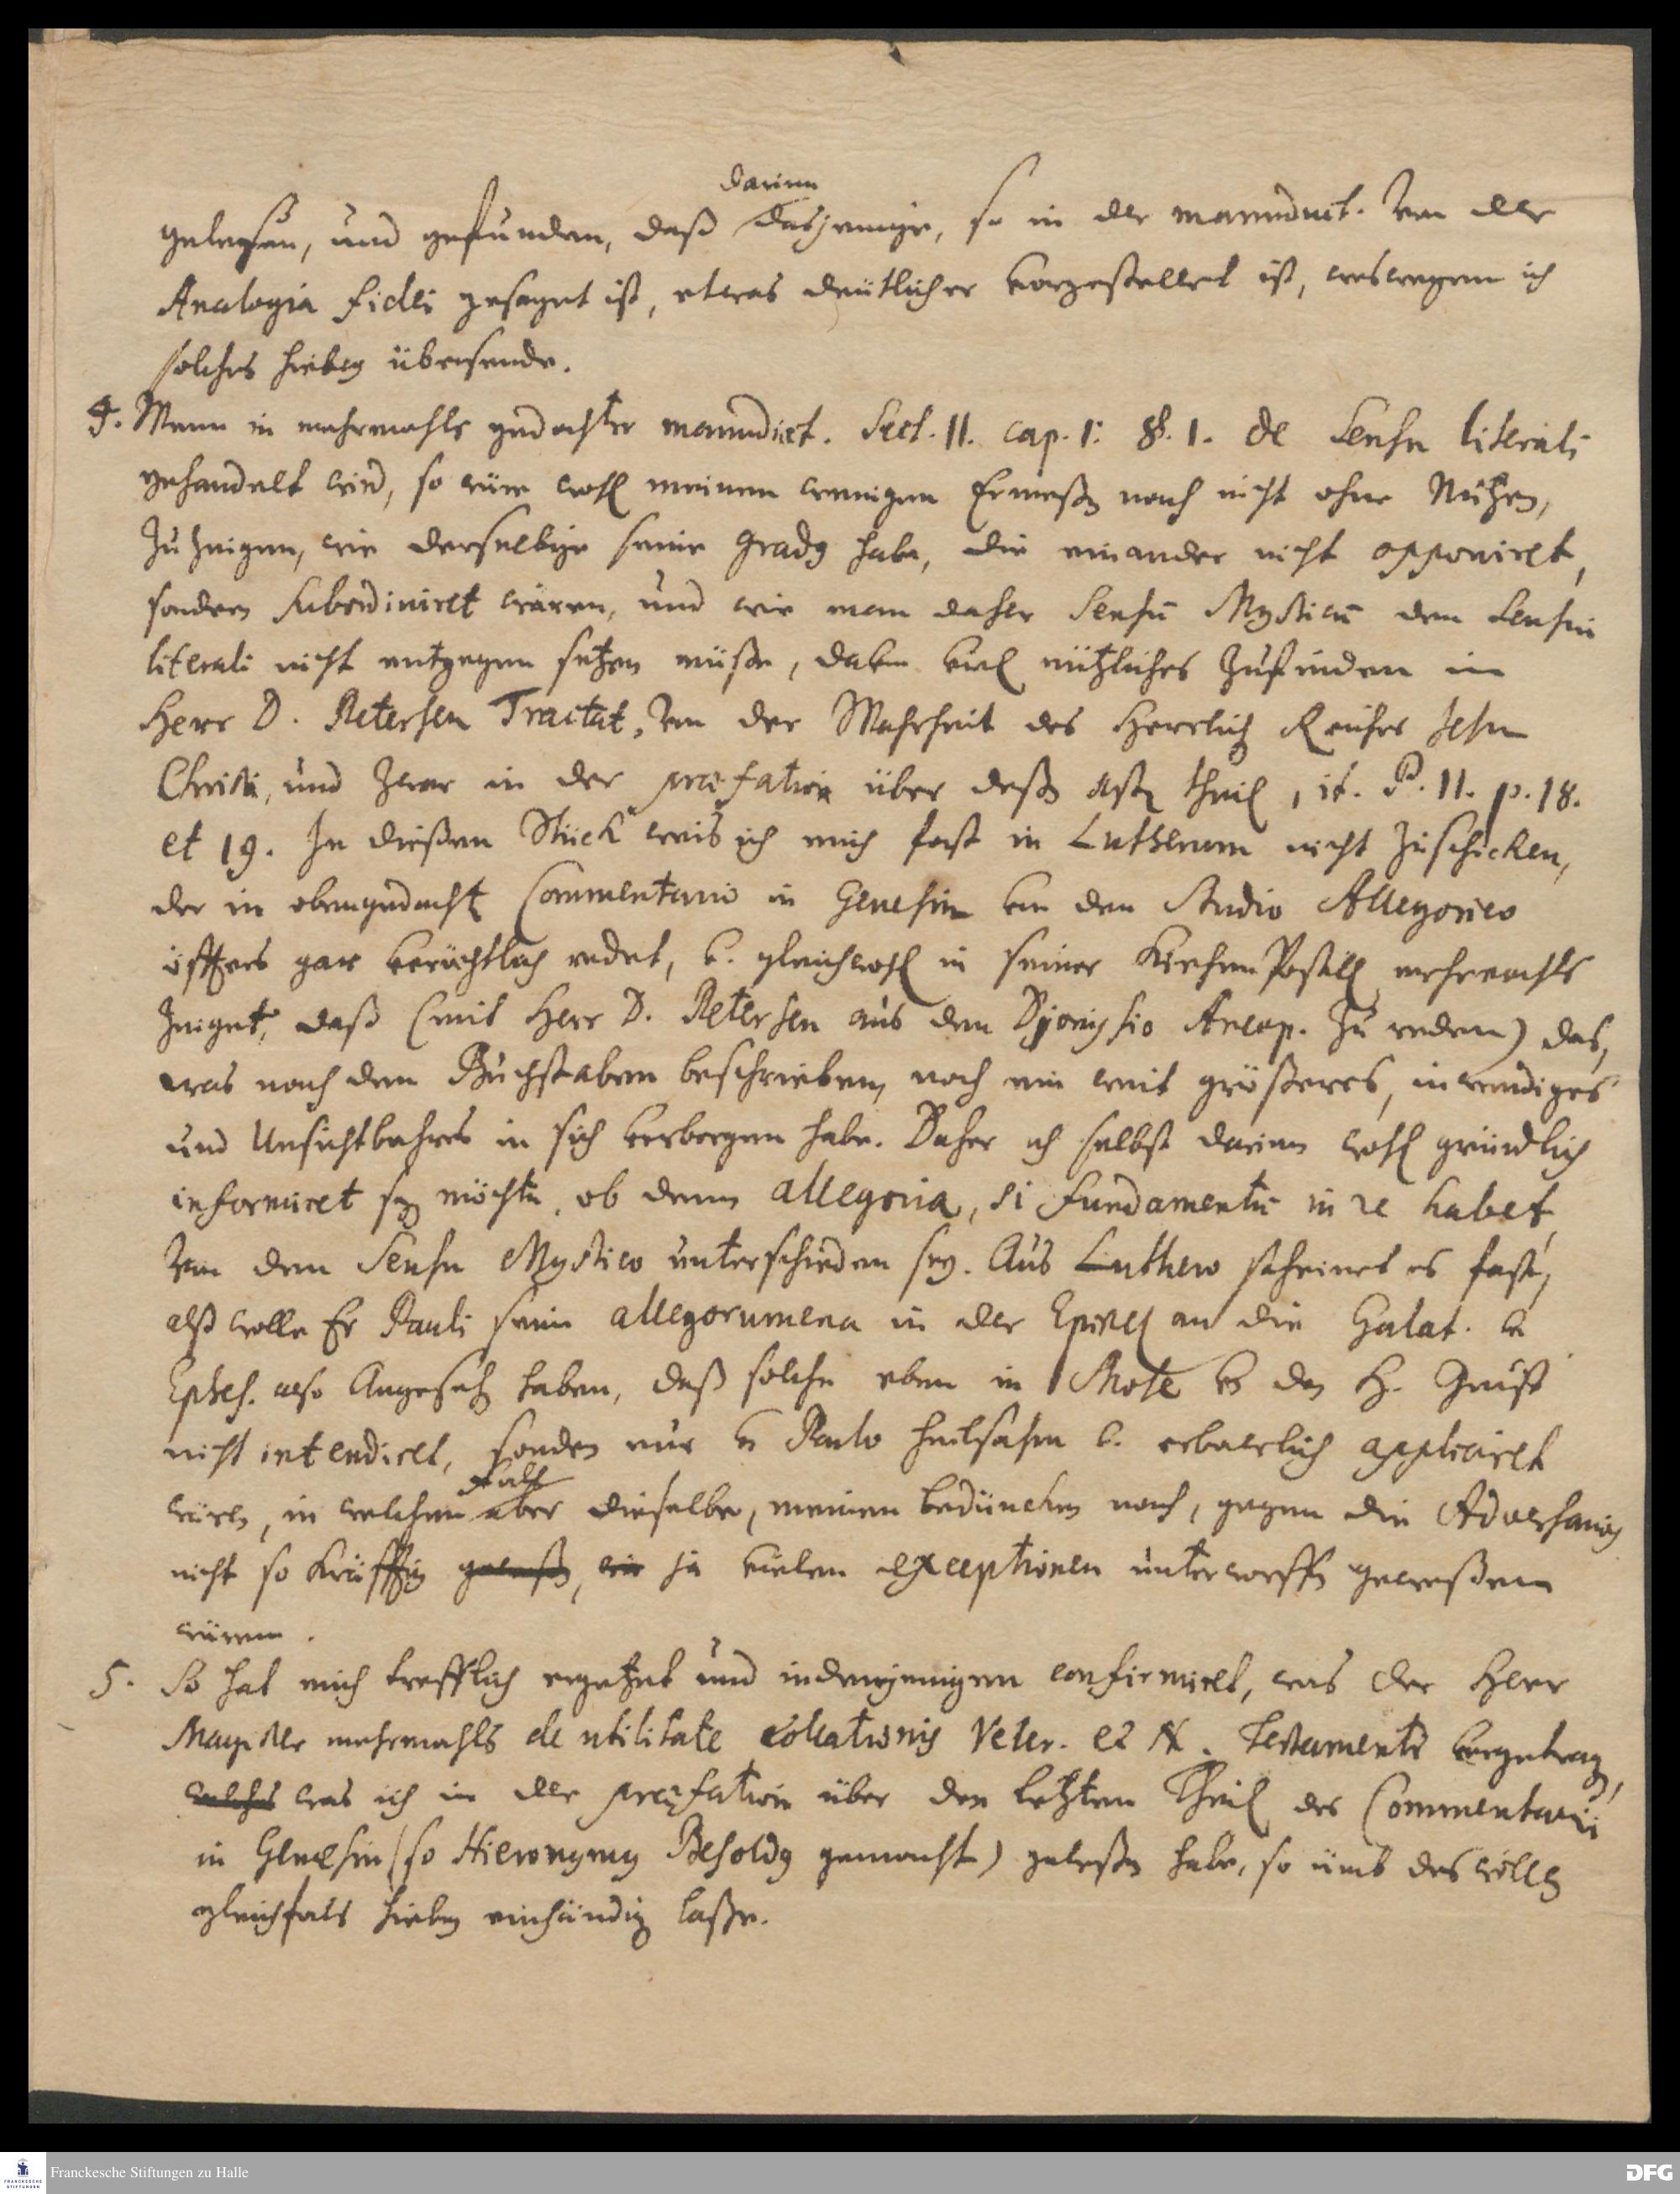 darinn
gelesen, und gefunden, daß dasjenige, so in der manuduct. von der
Analogia fidei gesaget ist, etwas deütlicher vorgestellet ist, weswegen ich
solches hiebey übersende.
4. Wenn in mehrmahls gedachter manuduct. Sect. II. cap. 1. §. 1. de Sensu literali
gehandelt wird, so wäre wohl meinem wenigen Ermeßen nach nicht ohne Nutzen,
zuzeigen, wie derselbige seine Gradus habe, die einander nicht opponiret,
sondern subordiniret wären, und wie man daher Sensum Mysticum dem Sensui
literali nicht entgegen setzen müße, davon viel nützliches zufinden in
Herr D. Petersen Tractat, von der Wahrheit des Herrlichen Reiches Jesu
Christi, und zwar in der præfation über deßen ersten theil, it. P. II. p. 18.
et 19. In dießem Stück weis ich mich fast in Lutherum nicht zuschicken,
der in obengedachten Commentario in Genesin von dem Studio Allegorico
öffters gar verächtlich redet, u. gleichwohl in seiner Kirchen Postill mehrmahls
zeiget, daß (mit Herr D. Petersen aus dem Dionysio Areop. zu reden) das,
was nach dem Buchstaben beschrieben, noch ein weit größeres, inwendiges
und Unsichtbahres in sich verborgen habe. Daher ich selbst darinn wohl gründlich
informiret seyn möchte, ob denn allegoria, si fundamentum in re habet,
von dem Sensu Mystico unterschieden sey. Aus Luthero scheinet es fast,
alß wolle Er Pauli seine allegorumena in der Epistel an die Galat. u.
Ephes. also Angesehen haben, daß solche eben in Mose von dem H. Geist
nicht intendiret, sondern nur von Paulo heilsahm u. erbaulich appliciret
Fall
wären, in welchem aber dieselbe, meinem bedüncken nach, gegen die Adversarios
nicht so kräfftig geweßen, wie ja vielen exceptionen unterworffen geweßen
wären.
5. So hat mich trefflich ergetzet und in demjenigen confirmiret, was der Herr
Magister mehrmahls de utilitate collationis Veter. et N. Testamenti vorgetragen,
welches was ich in der præfation über den letzten Theil des Commentarii
in Genesin (so Hieronymus Besoldus gemacht) geleßen habe, so umb deswillen
gleichfals hiebey einhändigen laße.
Franckesche Stiftungen zu Halle
DFG